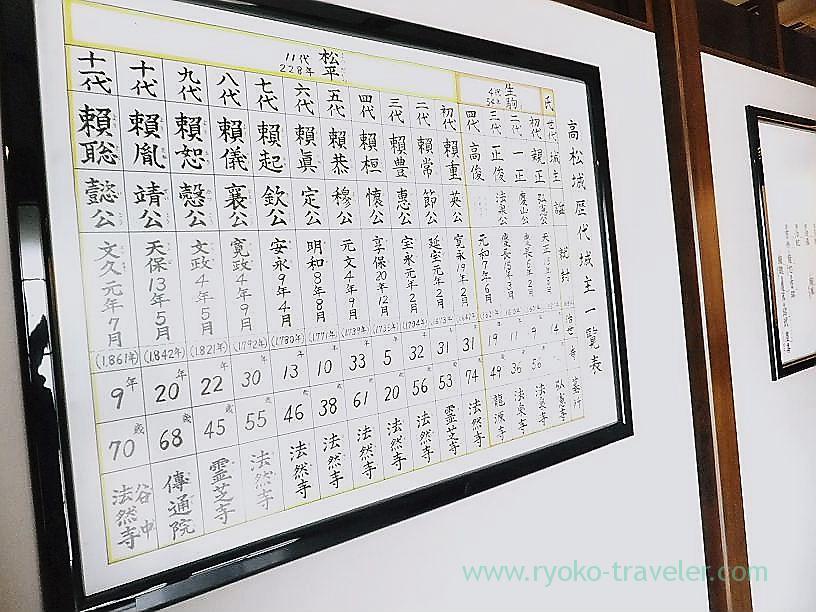 高松城歴代城主一覧表
氏 世代 城主 諡 就封 治世 寿 墓所
生駒 4代 54年
初代 親正 弘憲公 14 弘憲寺
二代 一正 慶山公 9 56 法泉寺
三代 正俊 法泉公 11 36 法泉寺
四代 高俊 元和7年6月 (1621年) 19 49 龍源寺
松平 11代 228年
初代 頼重 英公 寛永19年2月 (1642年) 31 74 法然寺
二代 頼常 節公 延宝元年2月 (1673年) 31 53 霊芝寺
三代 頼豊 惠公 宝永元年2月 (1704年) 32 56 法然寺
四代 頼桓 懐公 享保20年12月 (1735年) 5 20 法然寺
五代 頼恭 穆公 元文4年9月 (1739年) 33 61 法然寺
六代 頼眞 定公 明和8年8月 (1771年) 10 38 法然寺
七代 頼起 欽公 安永9年4月 (1780年) 13 46 法然寺
八代 頼儀 襄公 寛政4年9月 (1792年) 30年 55歳 法然寺
九代 頼恕 愨公 文政4年5月 (1821年) 22年 45歳 霊芝寺
十代 頼胤 靖公 天保13年5月 (1842年) 20年 68歳 傳通院
十一代 頼聡 懿公 文久元年7月 (1861年) 9年 70歳 谷中法然寺
www.ryoko-traveler.com